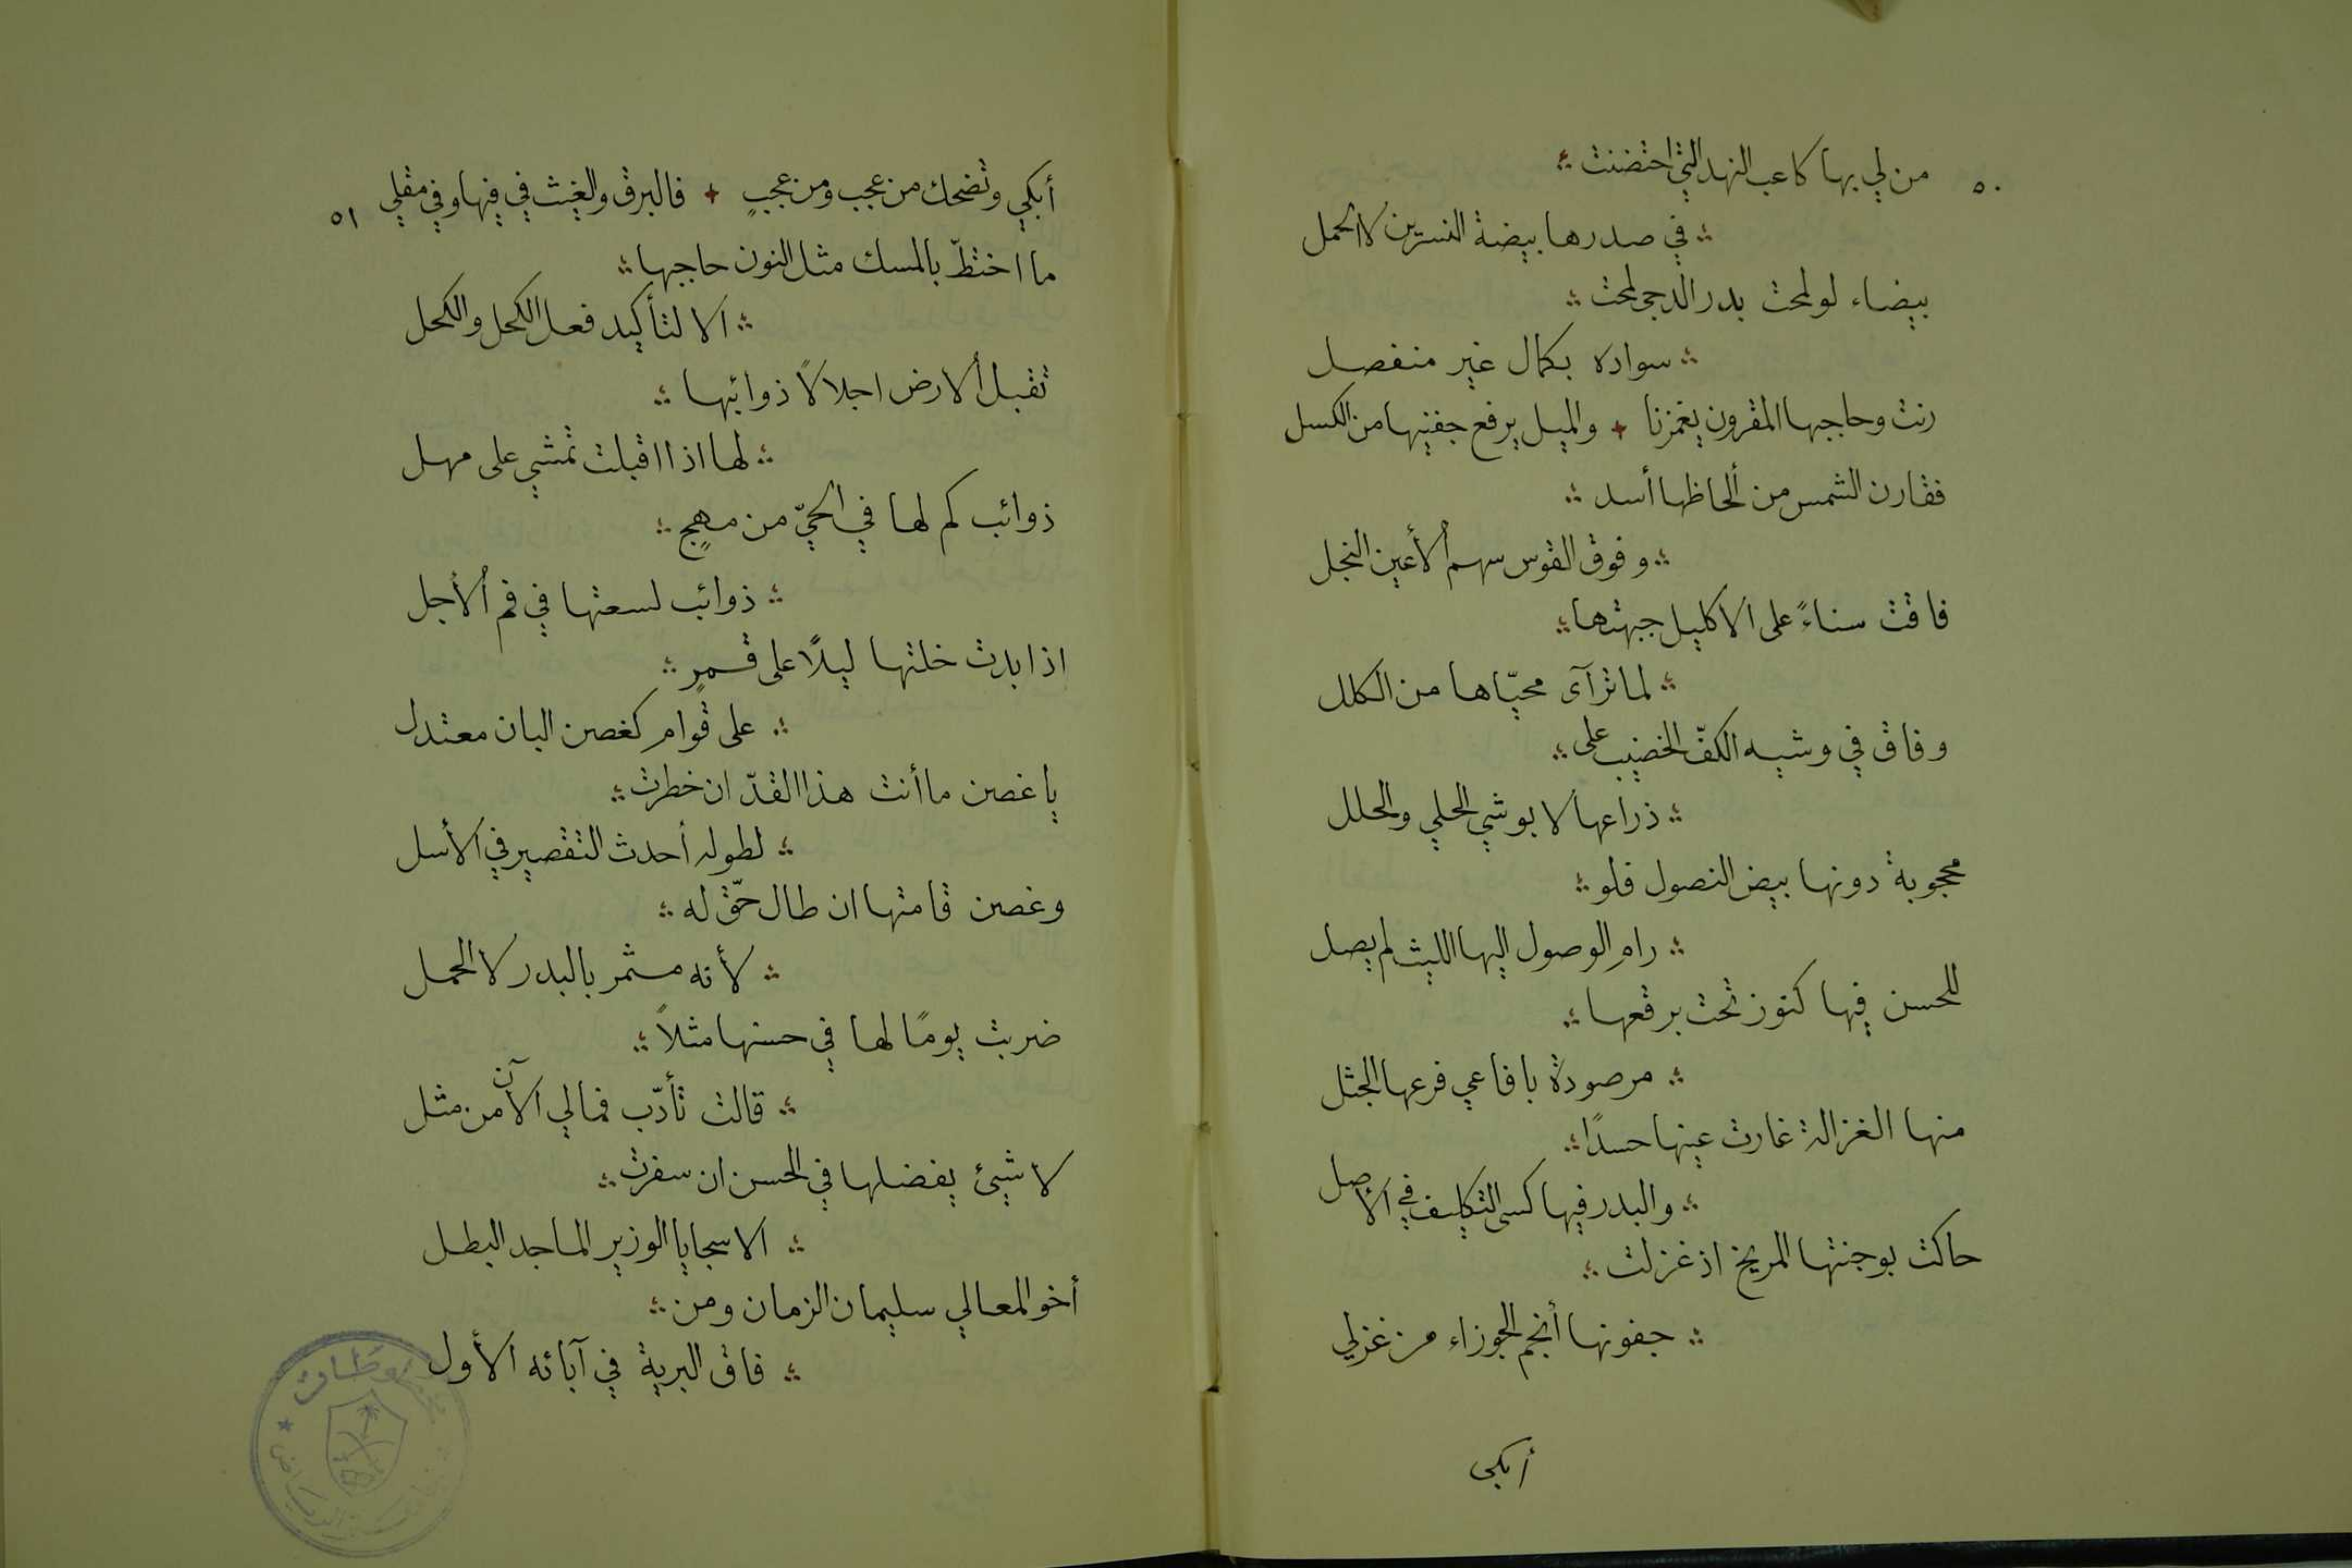 ٥٠
من لي بها كاعب النهد التي احتضنت
في صدرها بيضة النسرين لا الحمل
بيضاء لو لمحت بدر الدجى لمحت
سواده بكمال غير منفصل
رنت وحاجبها المقرون يغمزنا + والميل يرفع جفنيها من الكسل
فقارن الشمس من ألحاظها أسد
وفوق القوس سهم الأعين النجل
فاقت سناءً على الاكليل جبهتها
لما ترآى محيّاها من الكلل
وفاق في وشيه الكفّ الخضيب على
ذراعها لا بوشي الحلي والحلل
محجوبة دونها بيض النصول فلو
رام الوصول اليها الليث لم يصل
للحسن فيها كنوز تحت برقعها
مرصودة بافاعي فرعها الجثل
منها الغزالة غارت عينها حسدًا
والبدر فيها كسى التكليف في الأصل
حاكت بوجنتها المريخ اذ غزلت
جفونها أنجم الجوزاء من غزلي
أبكي
٥١
أبكي وتضحك من عجب ومن عجبٍ + فالبرق والغيث في فيها وفي مقلي
ما اختطّ بالمسك مثل النون حاجبها
الا لتأكيد فعل الكحل والكحل
تقبل ألارض اجلالاً ذوائبها
لها اذا اقبلت تمشي على مهل
ذوائب كم لها في الحيّ من مهجٍ
ذوائب لسعتها في فم الأجل
اذا بدت خلتها ليلاً على قمرٍ
على قوام كغصن البان معتدل
يا غصن ما أنت هذا القدّ ان خطرت
لطوله أحدث التقصير في الأسل
وغصن قامتها ان طال حقّ له
لأنه مثمر بالبدر لا الحمل
ضربت يومًا لها في حسنها مثلاً
قالت تأدّب فمالي الآن من مثل
لا شيئ يفضلها في الحسن ان سفرت
الا سجايا الوزير الماجد البطل
أخو المعالي سليمان الزمان ومن
فاق البرية في آبائه الأول